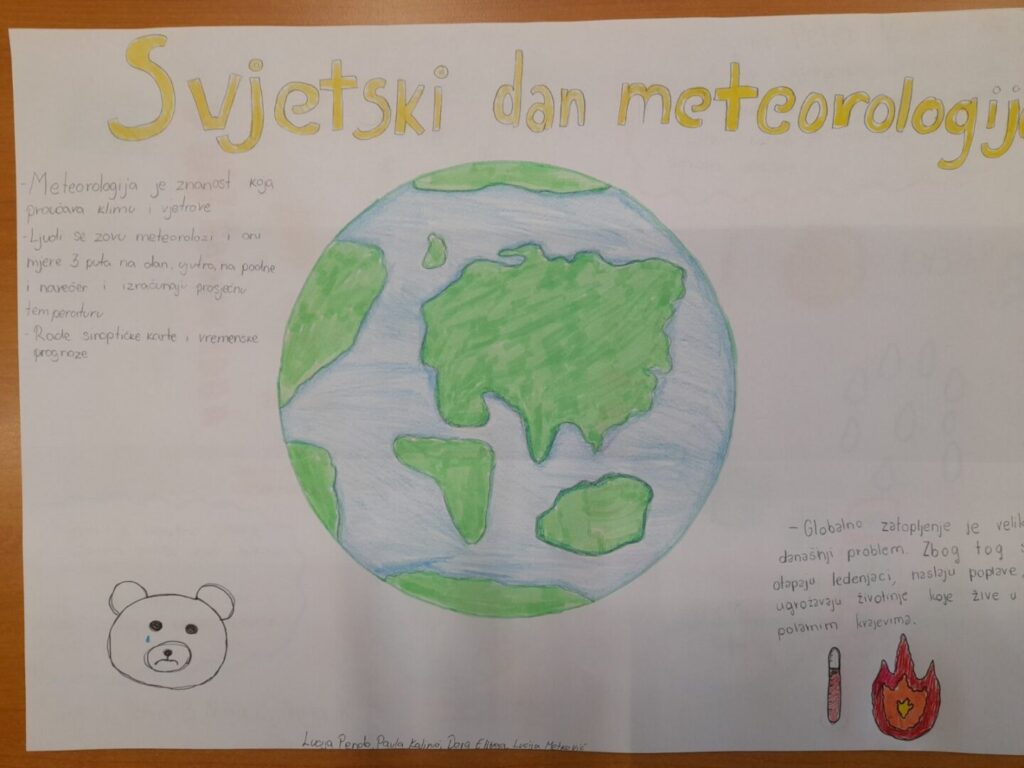 Svjetski dan meteorologije
-Meteorologija je znanost koja
proučava klimu i vjetrove
-Ljudi se zovu meteorolozi i oni
mjere 3 puta na dan, ujutro, na podne
i navečer i izračunaju prosječnu
temperaturu
- Rade sinoptičke karte i vremenske
prognoze
- Globalno zatopljenje je velik
današnji problem. Zbog tog
otapaju ledenjaci, nastaju poplave,
ugrožavaju životinje koje žive u
polarnim krajevima.
Lucija Paula Dora Lucija